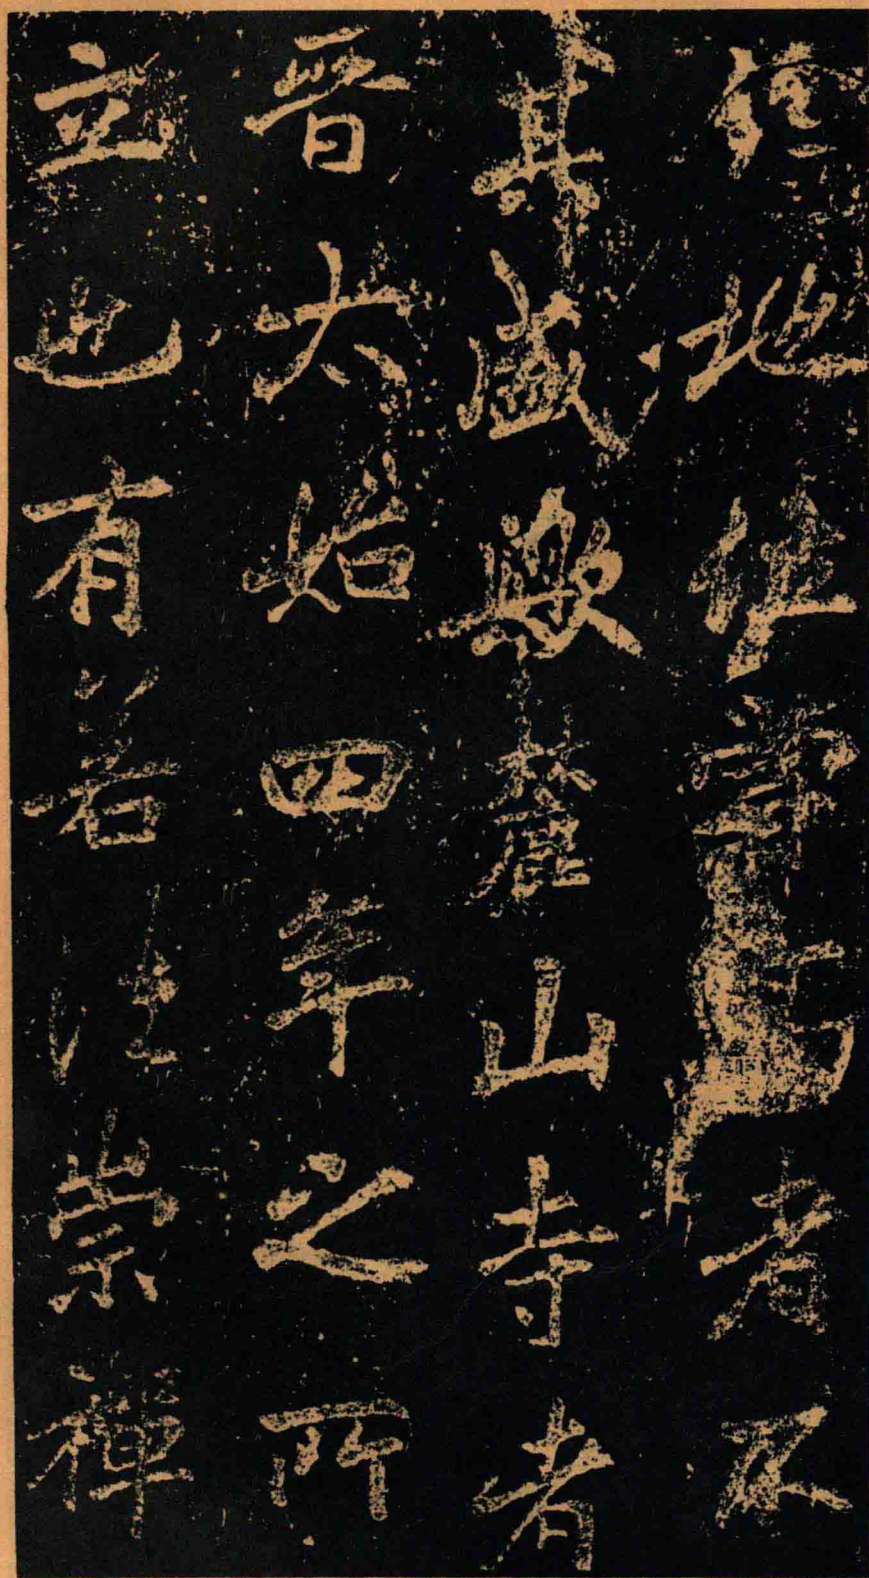 地位者不
其盛歟麓山寺者
晉太始四年之所
立也有若法崇禪